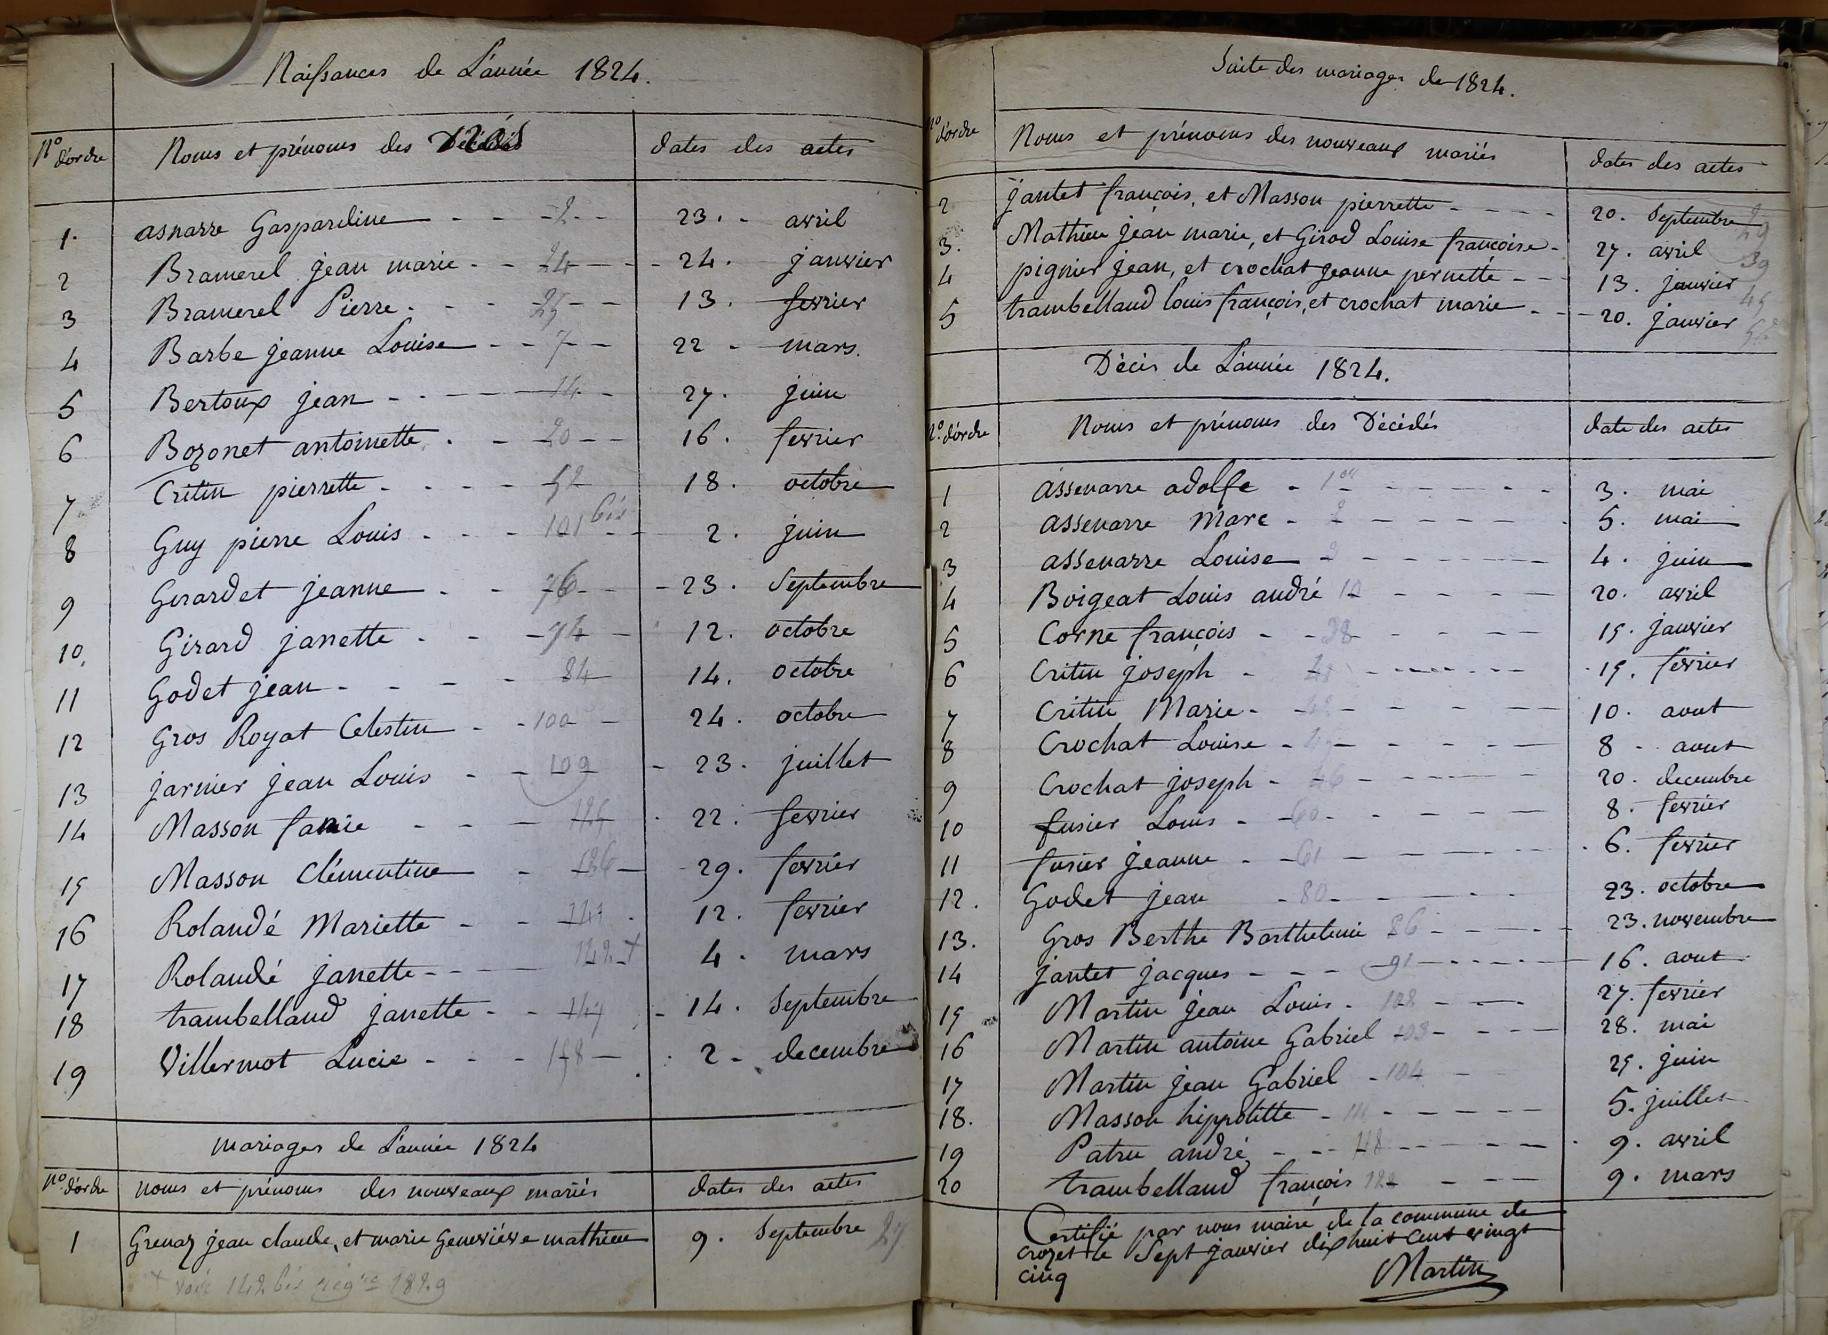 Naissances de L'année 1824.
No d'ordre Noms et prénoms des Nés dates des actes
1. asnarre Gaspardine - - 2 - - 23. - avril
2 Bramerel jean marie - - 24 - - 24. janvier
3 Bramerel Pierre. - - 25 - - 13. fevrier
4 Barbe jeanne Louise - - 7 - - 22 - mars.
5 Bertoux jean - - - 14 - 27. juin
6 Bozonet antoinette. - - 20 - - 16. fevrier
7 Critin pierrette - - - - 52 18. octobre
8 Guy pierre Louis - - - 101 bis - - 2. juin
9 Girardet jeanne - - 76 - - - 23. Septembre
10. Girard janette - - - 74 - 12. octobre
11 Godet jean - - - - 84 14. octobre
12 Gros Royat Celestin - - 100 - 24. octobre
13 jarnier jean Louis - - 109 - 23. juillet
14 Masson fanie - - - 22. fevrier
15 Masson Clémentine - 126 - 29. fevrier
16 Rolandé Mariette - - 141 - 12. fevrier
17 Rolandé janette - - - 142 + 4. mars
18 trambelland janette - - 147 - 14. Septembre
19 Villermot Lucie - - - 148 - 2 - decembre
mariages de L'année 1824
No d'ordre noms et prénoms des nouveaux mariés dates des actes
1 Grenaz jean claude, et marie Geneviéve mathieu 9. Septembre 27
+ voir 142 bis 1829
Suite des mariages de 1824.
No d'ordre Noms et prénoms des nouveaux mariés dates des actes
2 jantet françois, et Masson pierrette - - - - 20. Septembre 29
3. Mathieu jean marie, et Girod Louise françoise - 27. avril 39
4 pignier jean, et crochat jeanne pernette - - - 13. janvier 45
5 trambelland louis françois, et crochat marie - - - 20. janvier
Décès de L'année 1824.
No. d'ordre Noms et prénoms des Décédés date des actes
1 assenarre adolfe - 1er - - - - - - 3. mai
2 assenarre Marc - 2 - - - - - 5. mai
3 assenarre Louise - 3 - - - - - 4. juin
4 Boigeat Louis andré 10 - - - - 20. avril
5 Corne françois - - 38 - - - - 15. janvier
6 Critin joseph - - - - - 15. fevrier
7 Critin Marie - 42 - - - - - 10. aout
8 Crochat Louise - - - - - - 8 - aout
9 Crochat joseph - 46 - - - - 20. decembre
10 fusier Louis - 60 - - - - - 8. fevrier
11 fusier jeanne - - 61 - - - - 6. fevrier
12. Godet jean - 80 - - - - 23. octobre
13. Gros Berthe Barthelemi 86 - - - - 23. novembre
14 jantet jacques - - - 91 - - - - 16. aout
15 Martin jean Louis - 102 - - - 27. fevrier
16 Martin antoine Gabriel 103 - - - - 28. mai
17 Martin jean Gabriel - 104 - - 25. juin
18. Masson hippolitte - 111 - - - - 5. juillet
19 Patru andré - - - 118 - - - - - 9. avril
20 trambelland françois 122 - - - - 9. mars
Certifié par nous maire de la commune de
crozet le Sept janvier dix huit cent vingt
cinq Martin